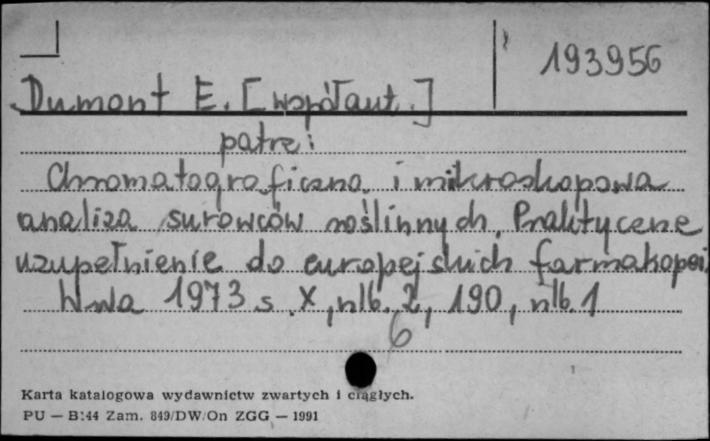 193956
Dumont E. [współaut.]
patrz:
Chromatograficzna i mikroskopowa
analiza surowców roślinnych. Praktyczne
uzupełnienie do europejskich farmakopei
W-wa 1973 s. X, nlb. 2, 190, nlb. 1
6
Karta katalogowa wydawnictw zwartych i ciągłych.
PU — B:44 Zam. 849/DW/On ZGG — 1991